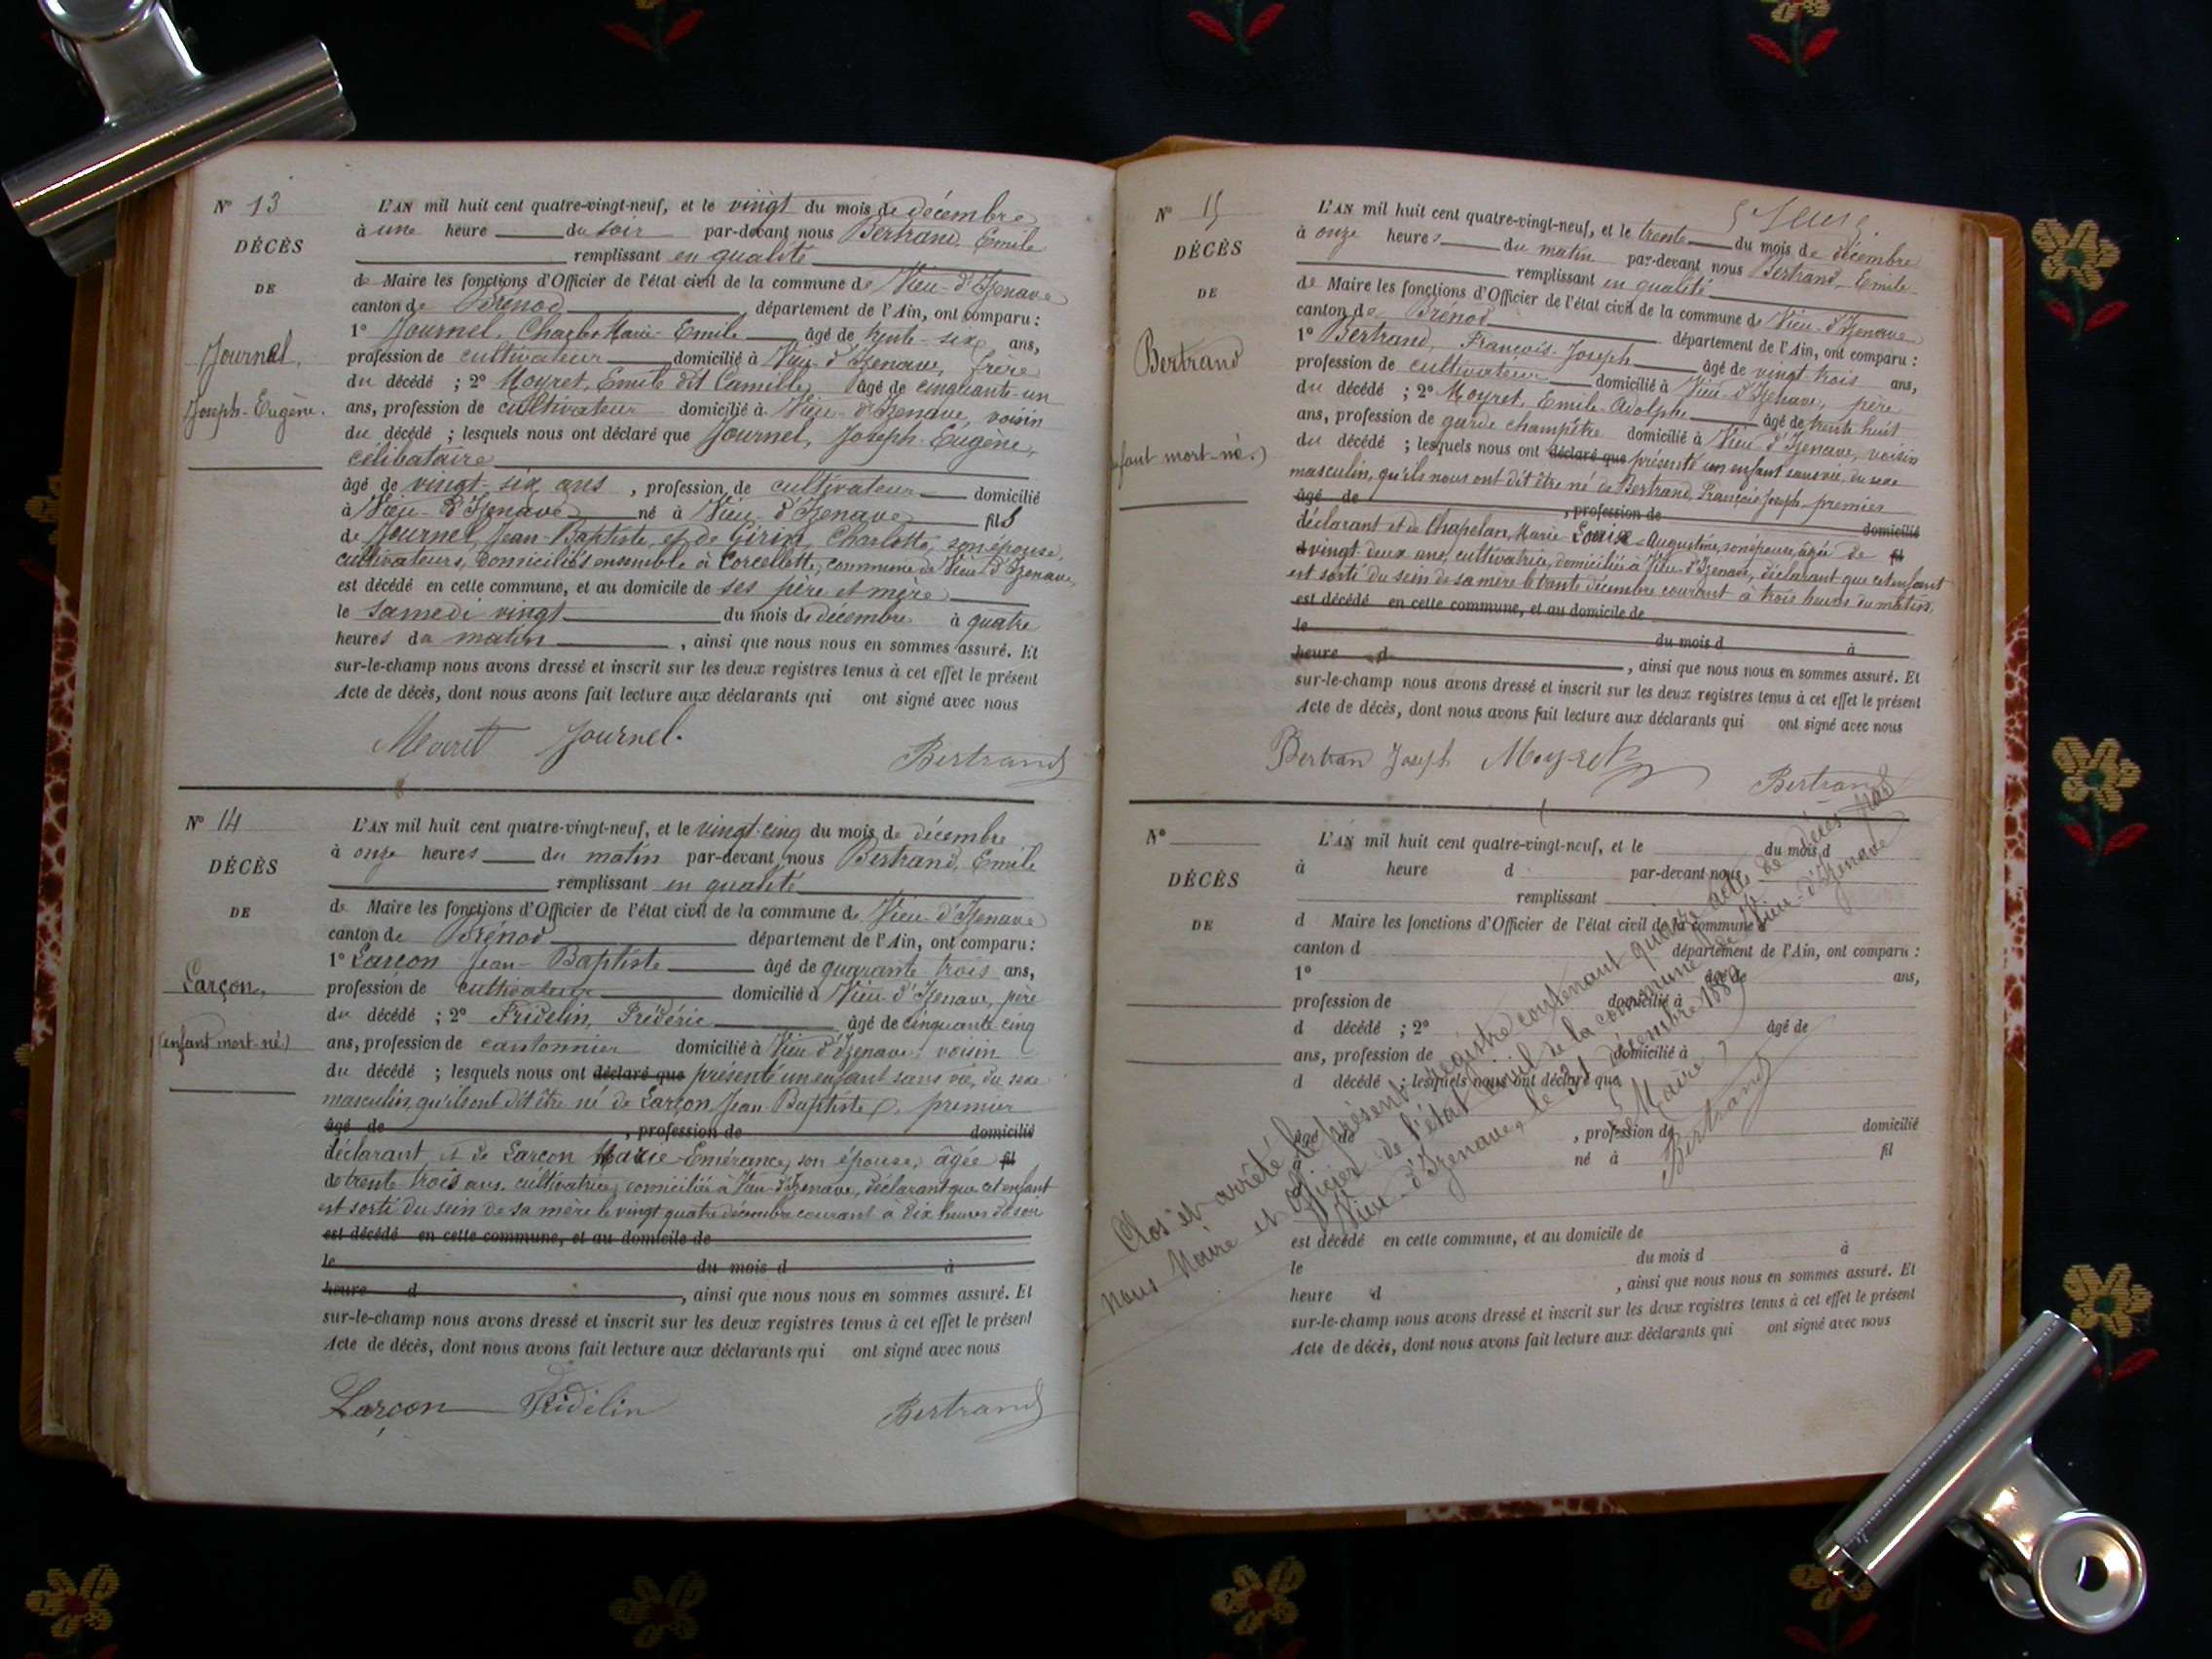 N° 13
DÉCÈS
DE
Journel,
Joseph-Eugène.
L'AN mil huit cent quatre-vingt-neuf, et le vingt du mois de décembre
à une heure du soir par-devant nous Bertrand, Emile
remplissant en qualité
de Maire les fonctions d'Officier de l'état civil de la commune de Vieu-d'Izenave
canton de Brénod, département de l'Ain, ont comparu :
1° Journel, Charles Marie Emile âgé de trente-six ans,
profession de cultivateur domicilié à Vieu-d'Izenave, frère
du décédé ; 2° Moyret, Emile dit Camille, âgé de cinquante-un
ans, profession de cultivateur domicilié à Vieu-d'Izenave, voisin
du décédé ; lesquels nous ont déclaré que Journel, Joseph-Eugène,
célibataire
âgé de vingt-six ans, profession de cultivateur domicilié
à Vieu-d'Izenave né à Vieu-d'Izenave fils
de Journel, Jean-Baptiste, et de Girin, Charlotte, son épouse,
cultivateurs, domiciliés ensemble à Corcellette, commune de Vieu-d'Izenave,
est décédé en cette commune, et au domicile de ses père et mère
le samedi vingt du mois de décembre à quatre
heures du matin, ainsi que nous nous en sommes assuré. Et
sur-le-champ nous avons dressé et inscrit sur les deux registres tenus à cet effet le présent
Acte de décès, dont nous avons fait lecture aux déclarants qui ont signé avec nous
Journel. Bertrand
N° 14
DÉCÈS
DE
Larçon,
(enfant mort-né)
L'AN mil huit cent quatre-vingt-neuf, et le vingt-cinq du mois de décembre
à onze heures du matin par-devant nous Bertrand, Emile
remplissant en qualité
de Maire les fonctions d'Officier de l'état civil de la commune de Vieu-d'Izenave
canton de Brénod département de l'Ain, ont comparu :
1° Larçon Jean-Baptiste âgé de quarante trois ans,
profession de cultivateur domicilié à Vieu-d'Izenave, père
du décédé ; 2° Fridelin, Frédéric âgé de cinquante cinq
ans, profession de cantonnier domicilié à Vieu-d'Izenave, voisin
du décédé ; lesquels nous ont déclaré que présenté un enfant sans vie, du sexe
masculin, qu'ils ont dit être né de Larçon Jean Baptiste, premier
âgé de , profession de domicilié
déclarant et de Larçon Marie-Emérance, son épouse, âgée fil
de trente trois ans, cultivatrice, domiciliée à Vieu-d'Izenave, déclarant que cet enfant
est sorti du sein de sa mère le vingt quatre décembre courant à dix heures du soir
est décédé en cette commune, et au domicile de
le du mois d à
heure d , ainsi que nous nous en sommes assuré. Et
sur-le-champ nous avons dressé et inscrit sur les deux registres tenus à cet effet le présent
Acte de décès, dont nous avons fait lecture aux déclarants qui ont signé avec nous
Larçon Fridelin Bertrand
N° 15
DÉCÈS
DE
Bertrand
enfant mort-né.)
L'AN mil huit cent quatre-vingt-neuf, et le trente du mois de décembre
à onze heures du matin par-devant nous Bertrand, Emile
remplissant en qualité
de Maire les fonctions d'Officier de l'état civil de la commune de Vieu-d'Izenave
canton de Brénod département de l'Ain, ont comparu :
1° Bertrand, François-Joseph âgé de vingt trois ans,
profession de cultivateur domicilié à Vieu-d'Izenave, père
du décédé ; 2° Moyret, Emile-Adolphe âgé de trente huit
ans, profession de garde champêtre domicilié à Vieu-d'Izenave, voisin
du décédé ; lesquels nous ont déclaré que présenté un enfant sans vie, du sexe
masculin, qu'ils nous ont dit être né de Bertrand, François Joseph premier
âgé de , profession de domicilié
déclarant et de Chapelan, Marie-Louise-Augustine, son épouse, âgée de fil
d vingt-deux ans, cultivatrice, domiciliée à Vieu-d'Izenave, déclarant que cet enfant
est sorti du sein de sa mère le trente décembre courant à trois heures du matin.
est décédé en cette commune, et au domicile de
le du mois d à
heure d , ainsi que nous nous en sommes assuré. Et
sur-le-champ nous avons dressé et inscrit sur les deux registres tenus à cet effet le présent
Acte de décès, dont nous avons fait lecture aux déclarants qui ont signé avec nous
Bertran Joseph Moyret Bertrand
N°
DÉCÈS
DE
L'AN mil huit cent quatre-vingt-neuf, et le du mois d
à heure d par-devant nous
remplissant
d Maire les fonctions d'Officier de l'état civil de la commune d
canton d département de l'Ain, ont comparu :
1° âgé de ans,
profession de domicilié à
d décédé ; 2° âgé de
ans, profession de domicilié à
d décédé ; lesquels nous ont déclaré que
âgé de , profession de domicilié
à né à fil
est décédé en cette commune, et au domicile de
le du mois d à
heure d , ainsi que nous nous en sommes assuré. Et
sur-le-champ nous avons dressé et inscrit sur les deux registres tenus à cet effet le présent
Acte de décès, dont nous avons fait lecture aux déclarants qui ont signé avec nous
Clos et arrêté le présent registre contenant quinze actes de décès par
nous Maire et Officier de l'état civil de la commune de Vieu-d'Izenave
Vieu-d'Izenave, le 31 décembre 1889
Le Maire,
Bertrand